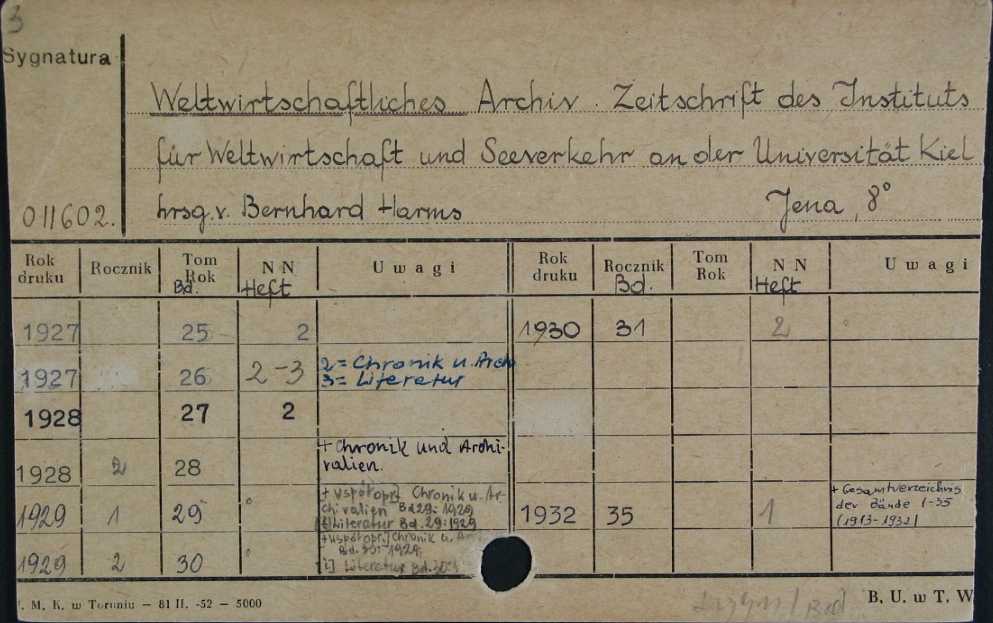 3
Sygnatura
Weltwirtschaftliches Archiv. Zeitschrift des Instituts
für Weltwirtschaft und Seeverkehr an der Universität Kiel
011602. hrsg. v. Bernhard Harms Jena, 8°
Rok druku Rocznik Tom Rok Bd. N N Heft Uwagi Rok druku Rocznik Bd. Tom Rok N N Heft Uwagi
1927 25 2 1930 31 2
1927 26 2-3 2= Chronik u. Arch
3= Literatur
1928 27 2
1928 2 28 + Chronik und Archi-
valien.
1929 1 29 + współopr. Chronik u. Ar-
chivalien Bd 29: 1929
Literatur Bd. 29: 1929
1932 35 1 + Gesamtverzeichnis
der Bände 1-35
(1913-1932)
1929 2 30 + współopr. Chronik u.
[i] Literatur Bd. 30:
M. K. w Toruniu — 81 II. -52 — 5000
B. U. w T. W